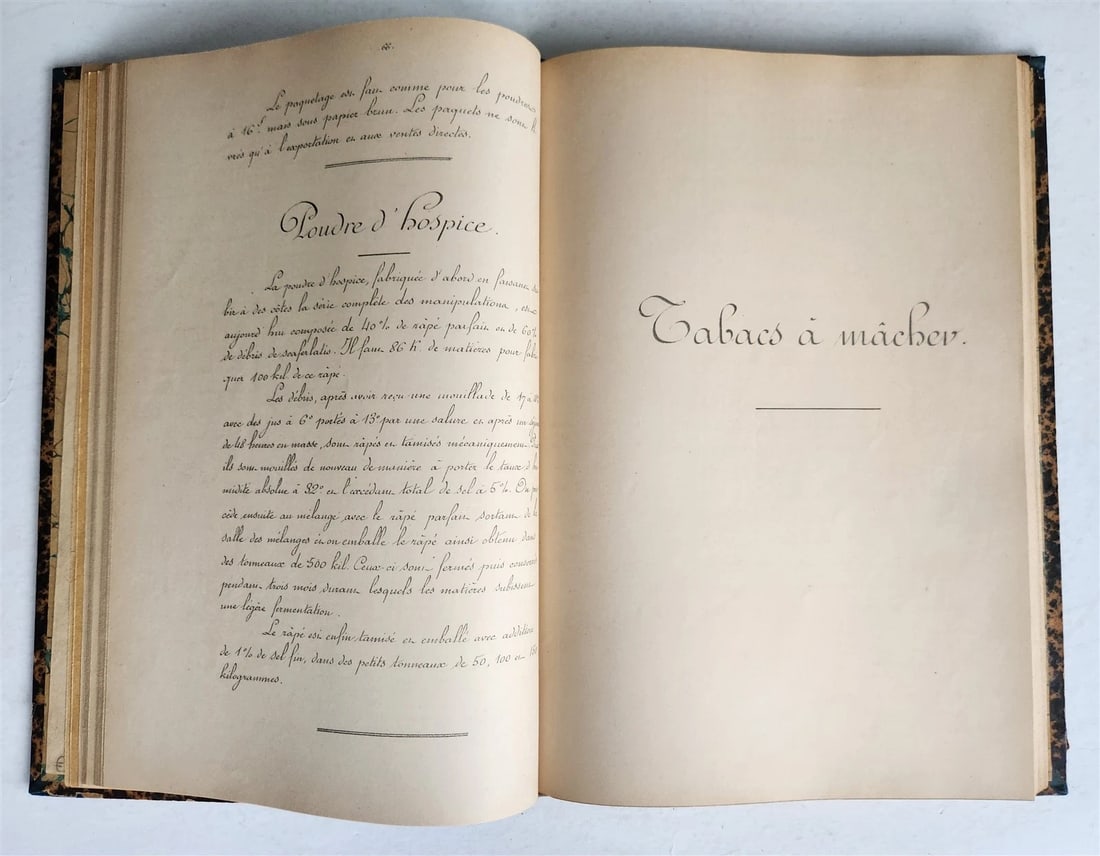 68.
Le paquetage est fait comme pour les poudres
à 16f mais sous papier brun. Les paquets ne sont li
vrés qu'à l'exportation et aux ventes directes.
Poudre d'hospice.
La poudre d'hospice, fabriquée d'abord en faisant su
bir à des côtes la série complète des manipulations, est
aujourd'hui composée de 40% de râpé parfait et de 60%
de débris de scaferlatis. Il faut 86 K. de matières pour fabri
quer 100 kil. de ce râpé.
Les débris, après avoir reçu une mouillade de 17 à
avec des jus à 6° portés à 13° par une salure et après un
de 48 heures en masse, sont râpés et tamisés mécaniquement.
ils sont mouillés de nouveau de manière à porter le taux d'hu
midité absolue à 32% et l'excédant total de sel à 5%. On pro
cède ensuite au mélange avec le râpé parfait sortant de la
salle des mélanges et on emballe le râpé ainsi obtenu dans
des tonneaux de 500 kil. Ceux-ci sont fermés puis conservés
pendant trois mois durant lesquels les matières subissent
une légère fermentation.
Le râpé est enfin tamisé et emballé avec addition
de 1% de sel fin, dans des petits tonneaux de 50, 100 et
kilogrammes.
Tabacs à mâcher.